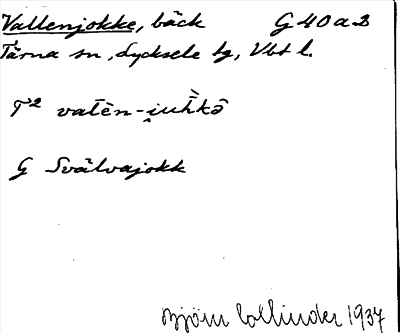 Vallenjokke, bäck G 40 a B
Tärna sn, Lycksele lg, Vbt l.
T² vatēn-i̯uh̀kə̂
G Svälvajokk
Björn Collinder 1937